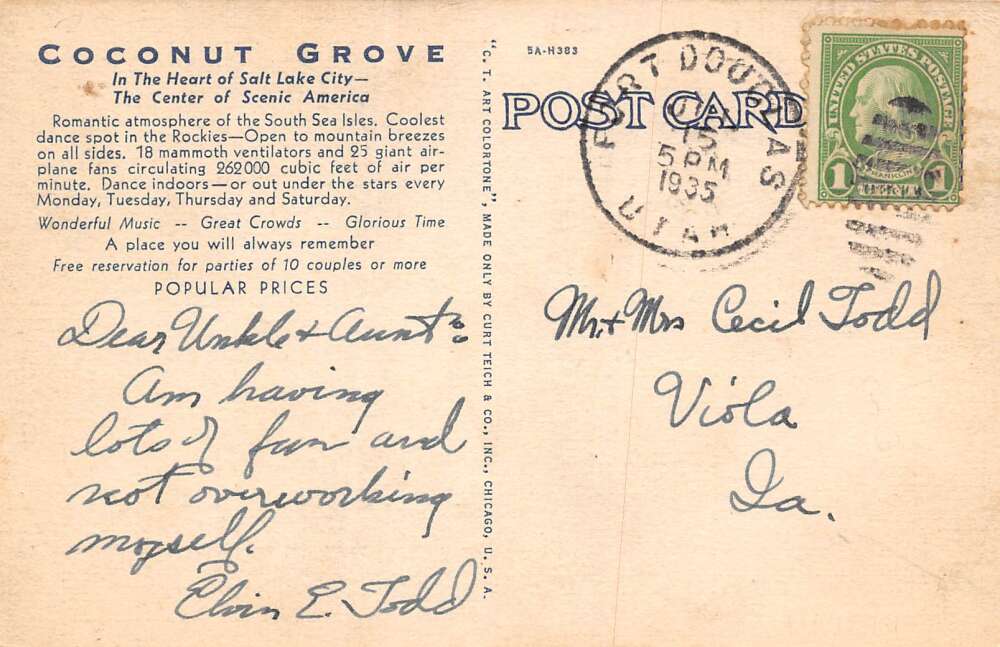 COCONUT GROVE
In The Heart of Salt Lake City—
The Center of Scenic America
Romantic atmosphere of the South Sea Isles. Coolest
dance spot in the Rockies—Open to mountain breezes
on all sides. 18 mammoth ventilators and 25 giant air-
plane fans circulating 262000 cubic feet of air per
minute. Dance indoors—or out under the stars every
Monday, Tuesday, Thursday and Saturday.
Wonderful Music -- Great Crowds -- Glorious Time
A place you will always remember
Free reservation for parties of 10 couples or more
POPULAR PRICES
Dear Unkle & Aunt:
Am having
lots of fun and
not overworking
myself.
Elvin E. Todd
"C. T. ART COLORTONE", MADE ONLY BY CURT TEICH & CO., INC., CHICAGO, U. S. A.
5A-H383
POST CARD
FORT DOUGLAS
15
5 PM
1935
UTAH
UNITED STATES POSTAGE
FRANKLIN
1 1
Mr. & Mrs Cecil Todd
Viola
Ia.